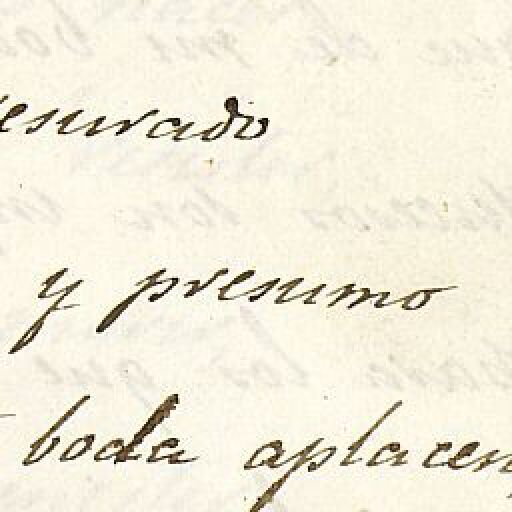 esurado
y presumo
boda aplacen